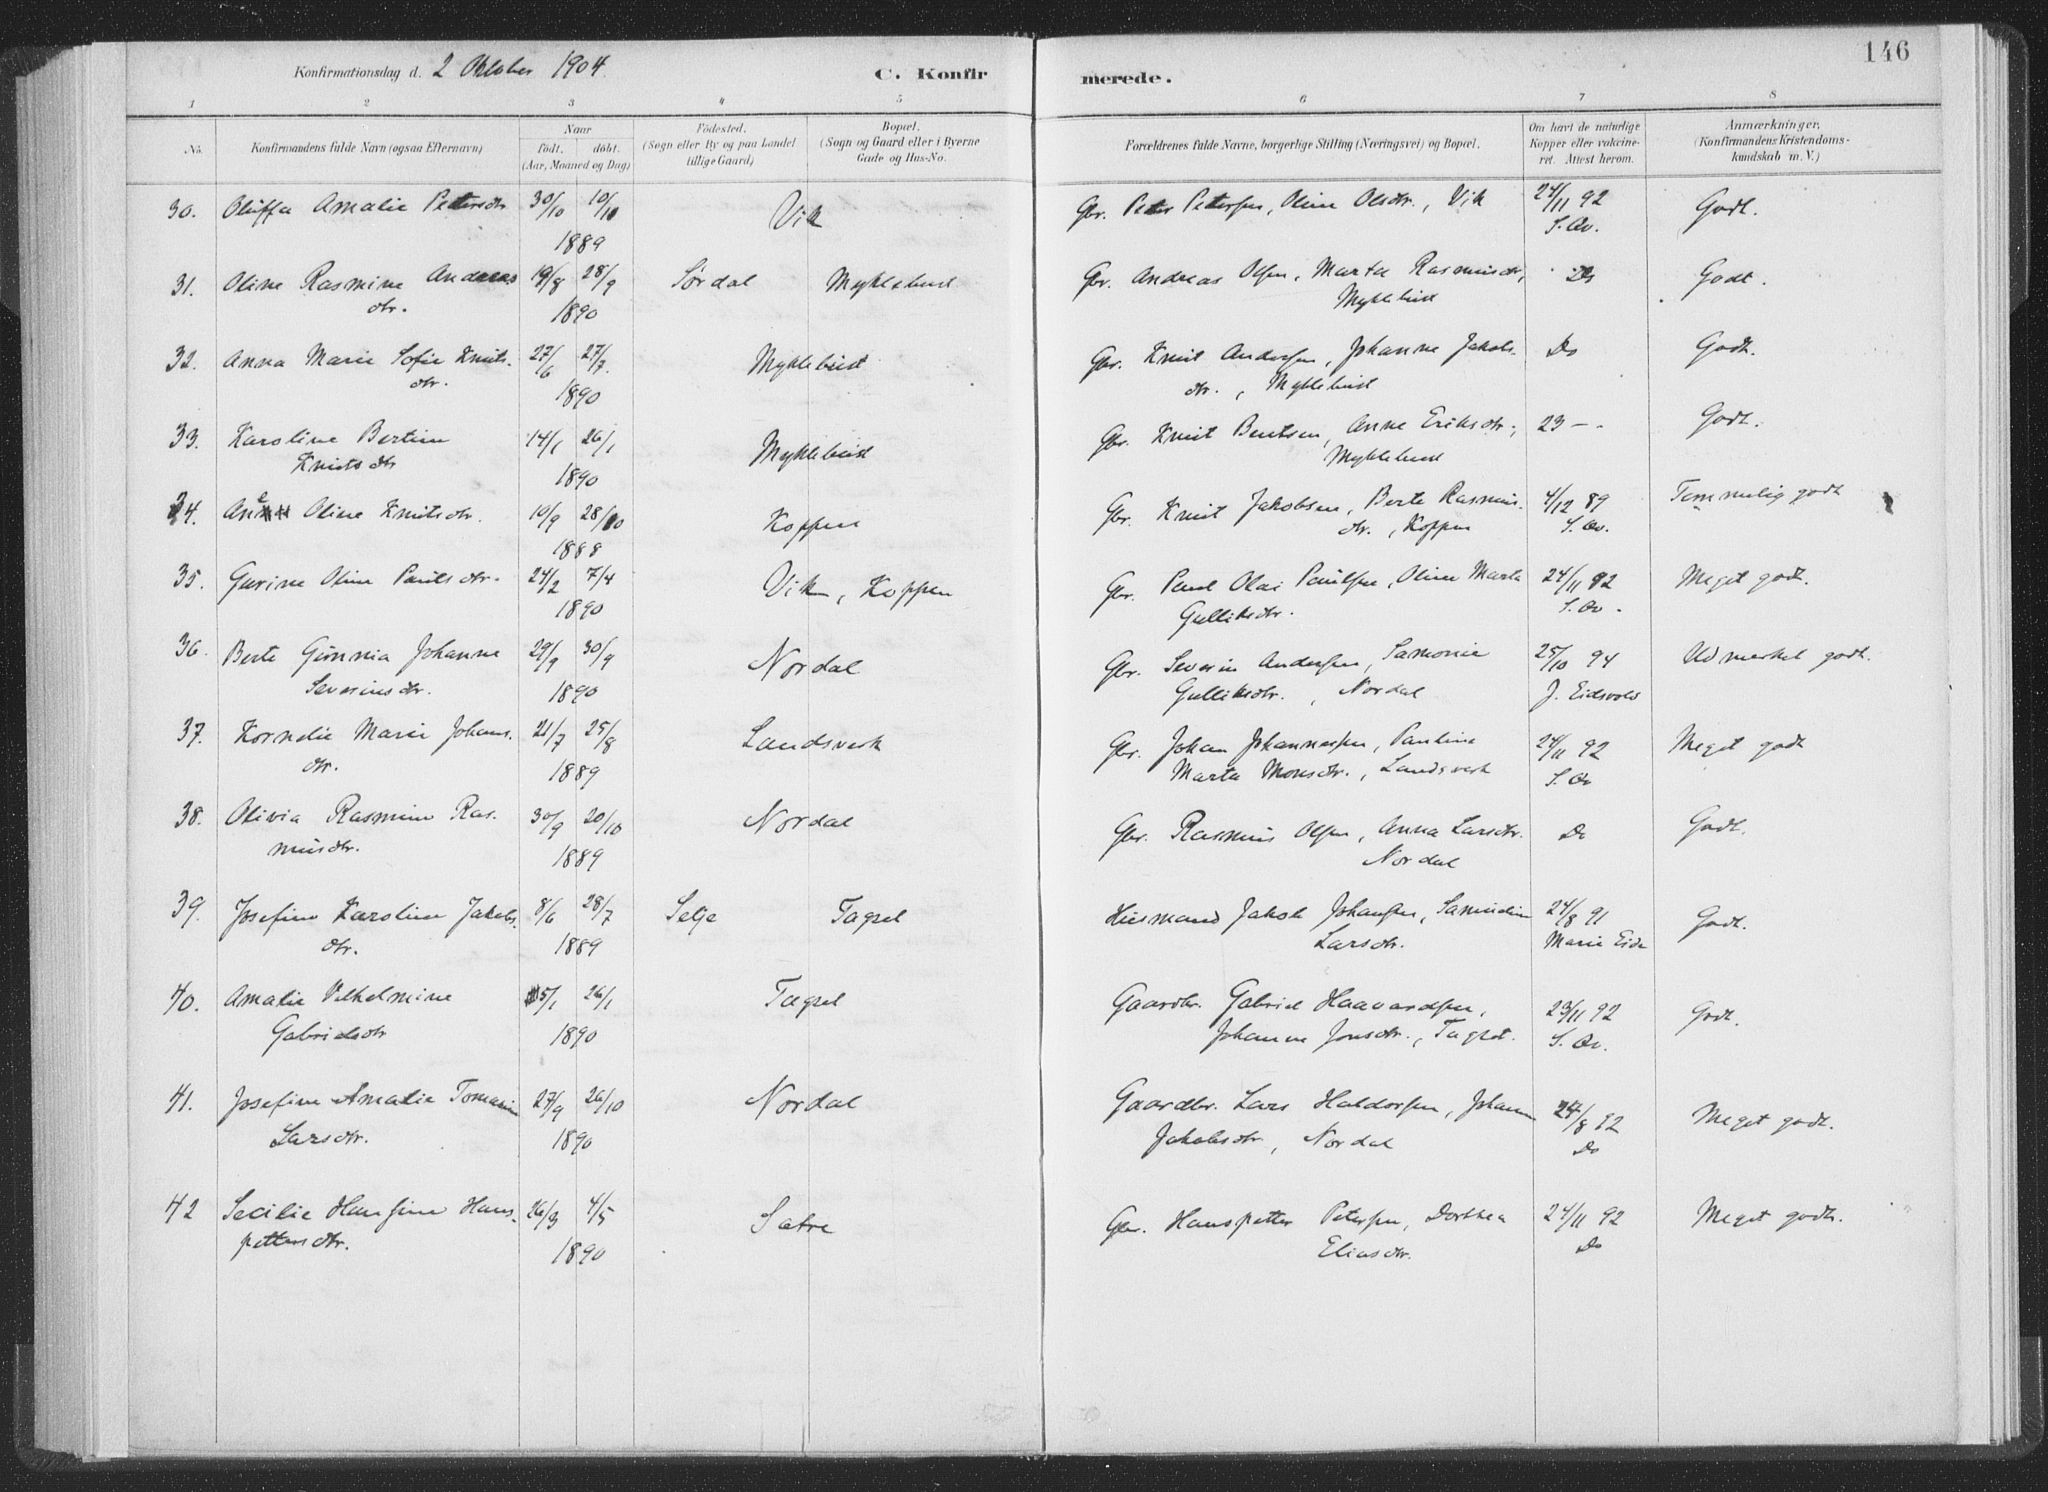 146
Konfirmationsdag d. 2 Oktober 1904.
C. Konfirmerede.
1 2 3 4 5 6 7 8
No.
Konfirmandens fulde Navn (ogsaa Efternavn)
Naar
født. døbt.
(Aar, Maaned og Dag)
Fødested.
(Sogn eller By og paa Landet
tillige Gaard)
Bopæl.
(Sogn og Gaard eller i Byerne
Gade og Hus-No.
Forældrenes fulde Navne, borgerlige Stilling (Næringsvei) og Bopæl.
Om havt de naturlige
Kopper eller vakcine-
ret. Attest herom.
Anmærkninger,
(Konfirmandens Kristendoms-
kundskab m. V.)
30. Oluffa Amalie Petersdtr 30/10 10/11 Vik Gbr. Peter Petersen, Oline Olsdtr., Vik 24/11 92 Godt.
1889 S. Øv.
31. Oline Rasmine Andreas 19/8 28/9 Sørdal Myklebust Gbr. Andreas Olsen, Marta Rasmusdtr, Do Godt.
dtr. 1890 Myklebust
32. Anna Marie Sofie Knuts- 27/6 27/7. Myklebust Gbr. Knut Andersen, Johanne Jakobs- Do Godt.
dtr. 1890 dtr., Myklebust
33. Karoline Bertine 14/1 26/1 Myklebust Gbr. Knut Bentsen, Anne Eriksdtr., 23 - - Godt.
Knutsdtr 1890 Myklebust
34. Ane Oline Knutsdtr. 19/9 28/10 Koppen Gbr. Knut Jakobsen, Berte Rasmus- 4/12 89 Temmelig godt
1888 dtr., Koppen S. Øv.
35. Gurine Oline Paulsdtr. 24/2 7/4 Vik, Koppen Gbr. Paul Olai Paulsen, Oline Marta 24/11 92 Meget godt.
1890 Gulliksdtr. S. Øv.
36. Berte Gunnia Johanne 29/9 30/9 Nordal Gbr. Severin Andersen, Samonie 25/10 94 Udmerket godt.
Severinsdtr. 1890 Gulliksdtr., Nordal J. Eidsvold
37. Kornelie Marie Johans- 21/7 25/8 Landsverk Gbr. Johan Johannessen, Pauline 24/11 92 Meget godt
dtr. 1889 Marta Monsdtr., Landsverk S. Øv
38. Olivia Rasmine Ras- 30/9 20/10 Nordal Gbr. Rasmus Olsen, Anna Larsdtr. Do Godt.
musdtr. 1889 Nordal
39. Josefine Karoline Jakobs- 8/6 28/7 Selje Tagset Husmand Jakob Johansen, Samueline 24/8 91 Godt.
dtr. 1889 Larsdtr. Marie Eide
40. Amalie Vilhelmine 5/1 26/1 Tagset Gaardbr. Gabriel Haavardsen, 23/11 92 Godt.
Gabrielsdtr 1890 Johanne Jonsdtr., Tagset. S. Øv.
41. Josefine Amalie Tomasine 27/9 26/10 Nordal Gaardbr. Lars Haldorsen, Johanne 24/8 92 Meget godt.
Larsdtr. 1890 Jakobsdtr, Nordal Do
42 Secilie Hansine Hans- 26/3 4/5 Sætre Gbr. Hanspetter Petersen, Dorthea 24/11 92 Meget godt.
pettersdtr. 1890 Eliasdtr. Do